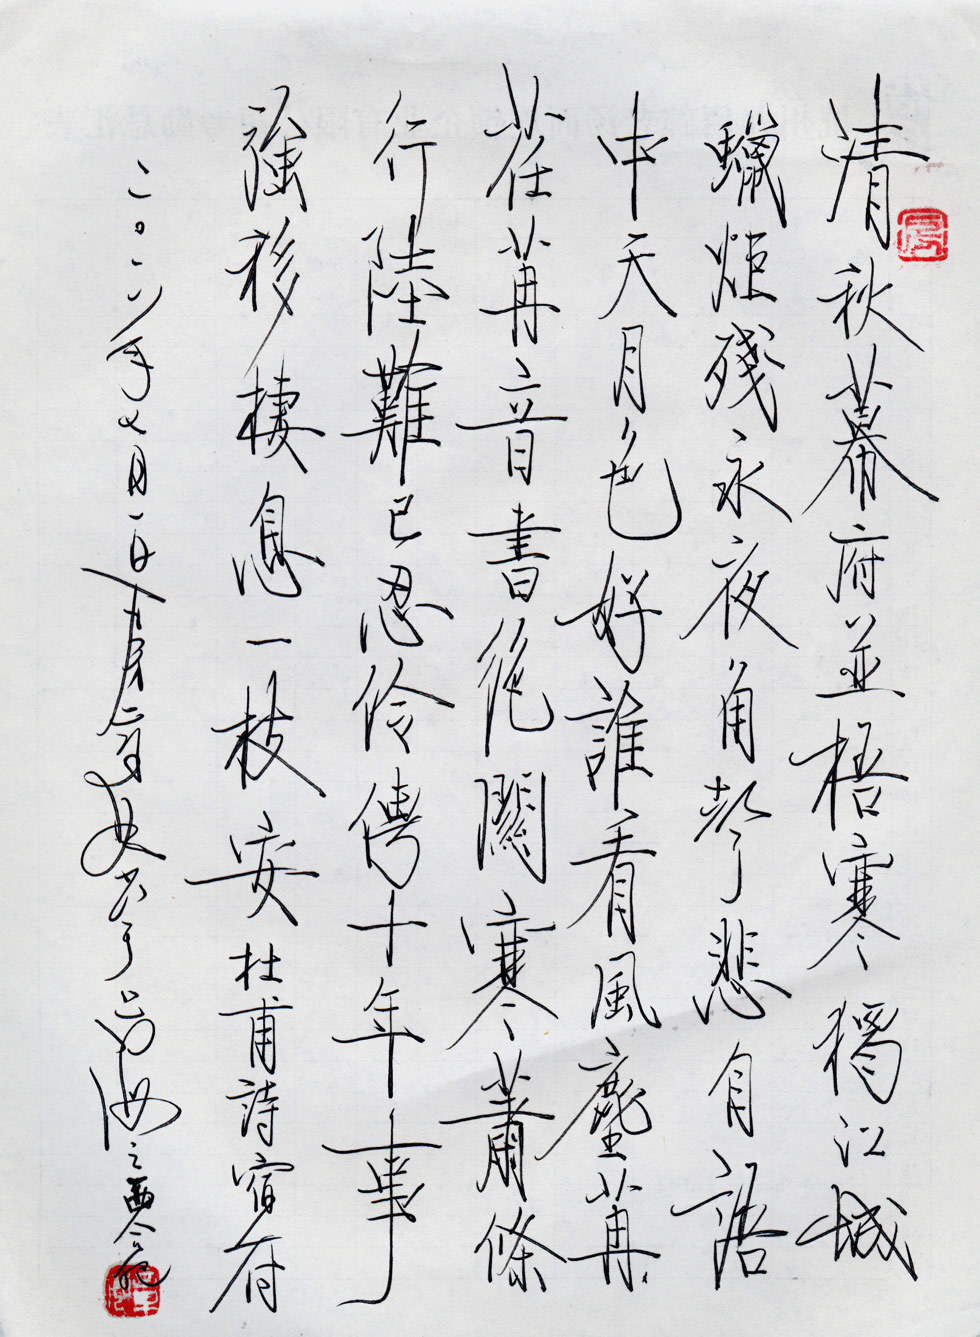 清秋幕府並梧寒獨江城
蠟炬殘永夜角聲悲自語
中天月色好誰看風塵苒
荏苒音書絕關寒蕭條
行陸難已忍伶俜十年事
強移棲息一枝安杜甫詩宿府
二〇一八年七月一日書於上海之西